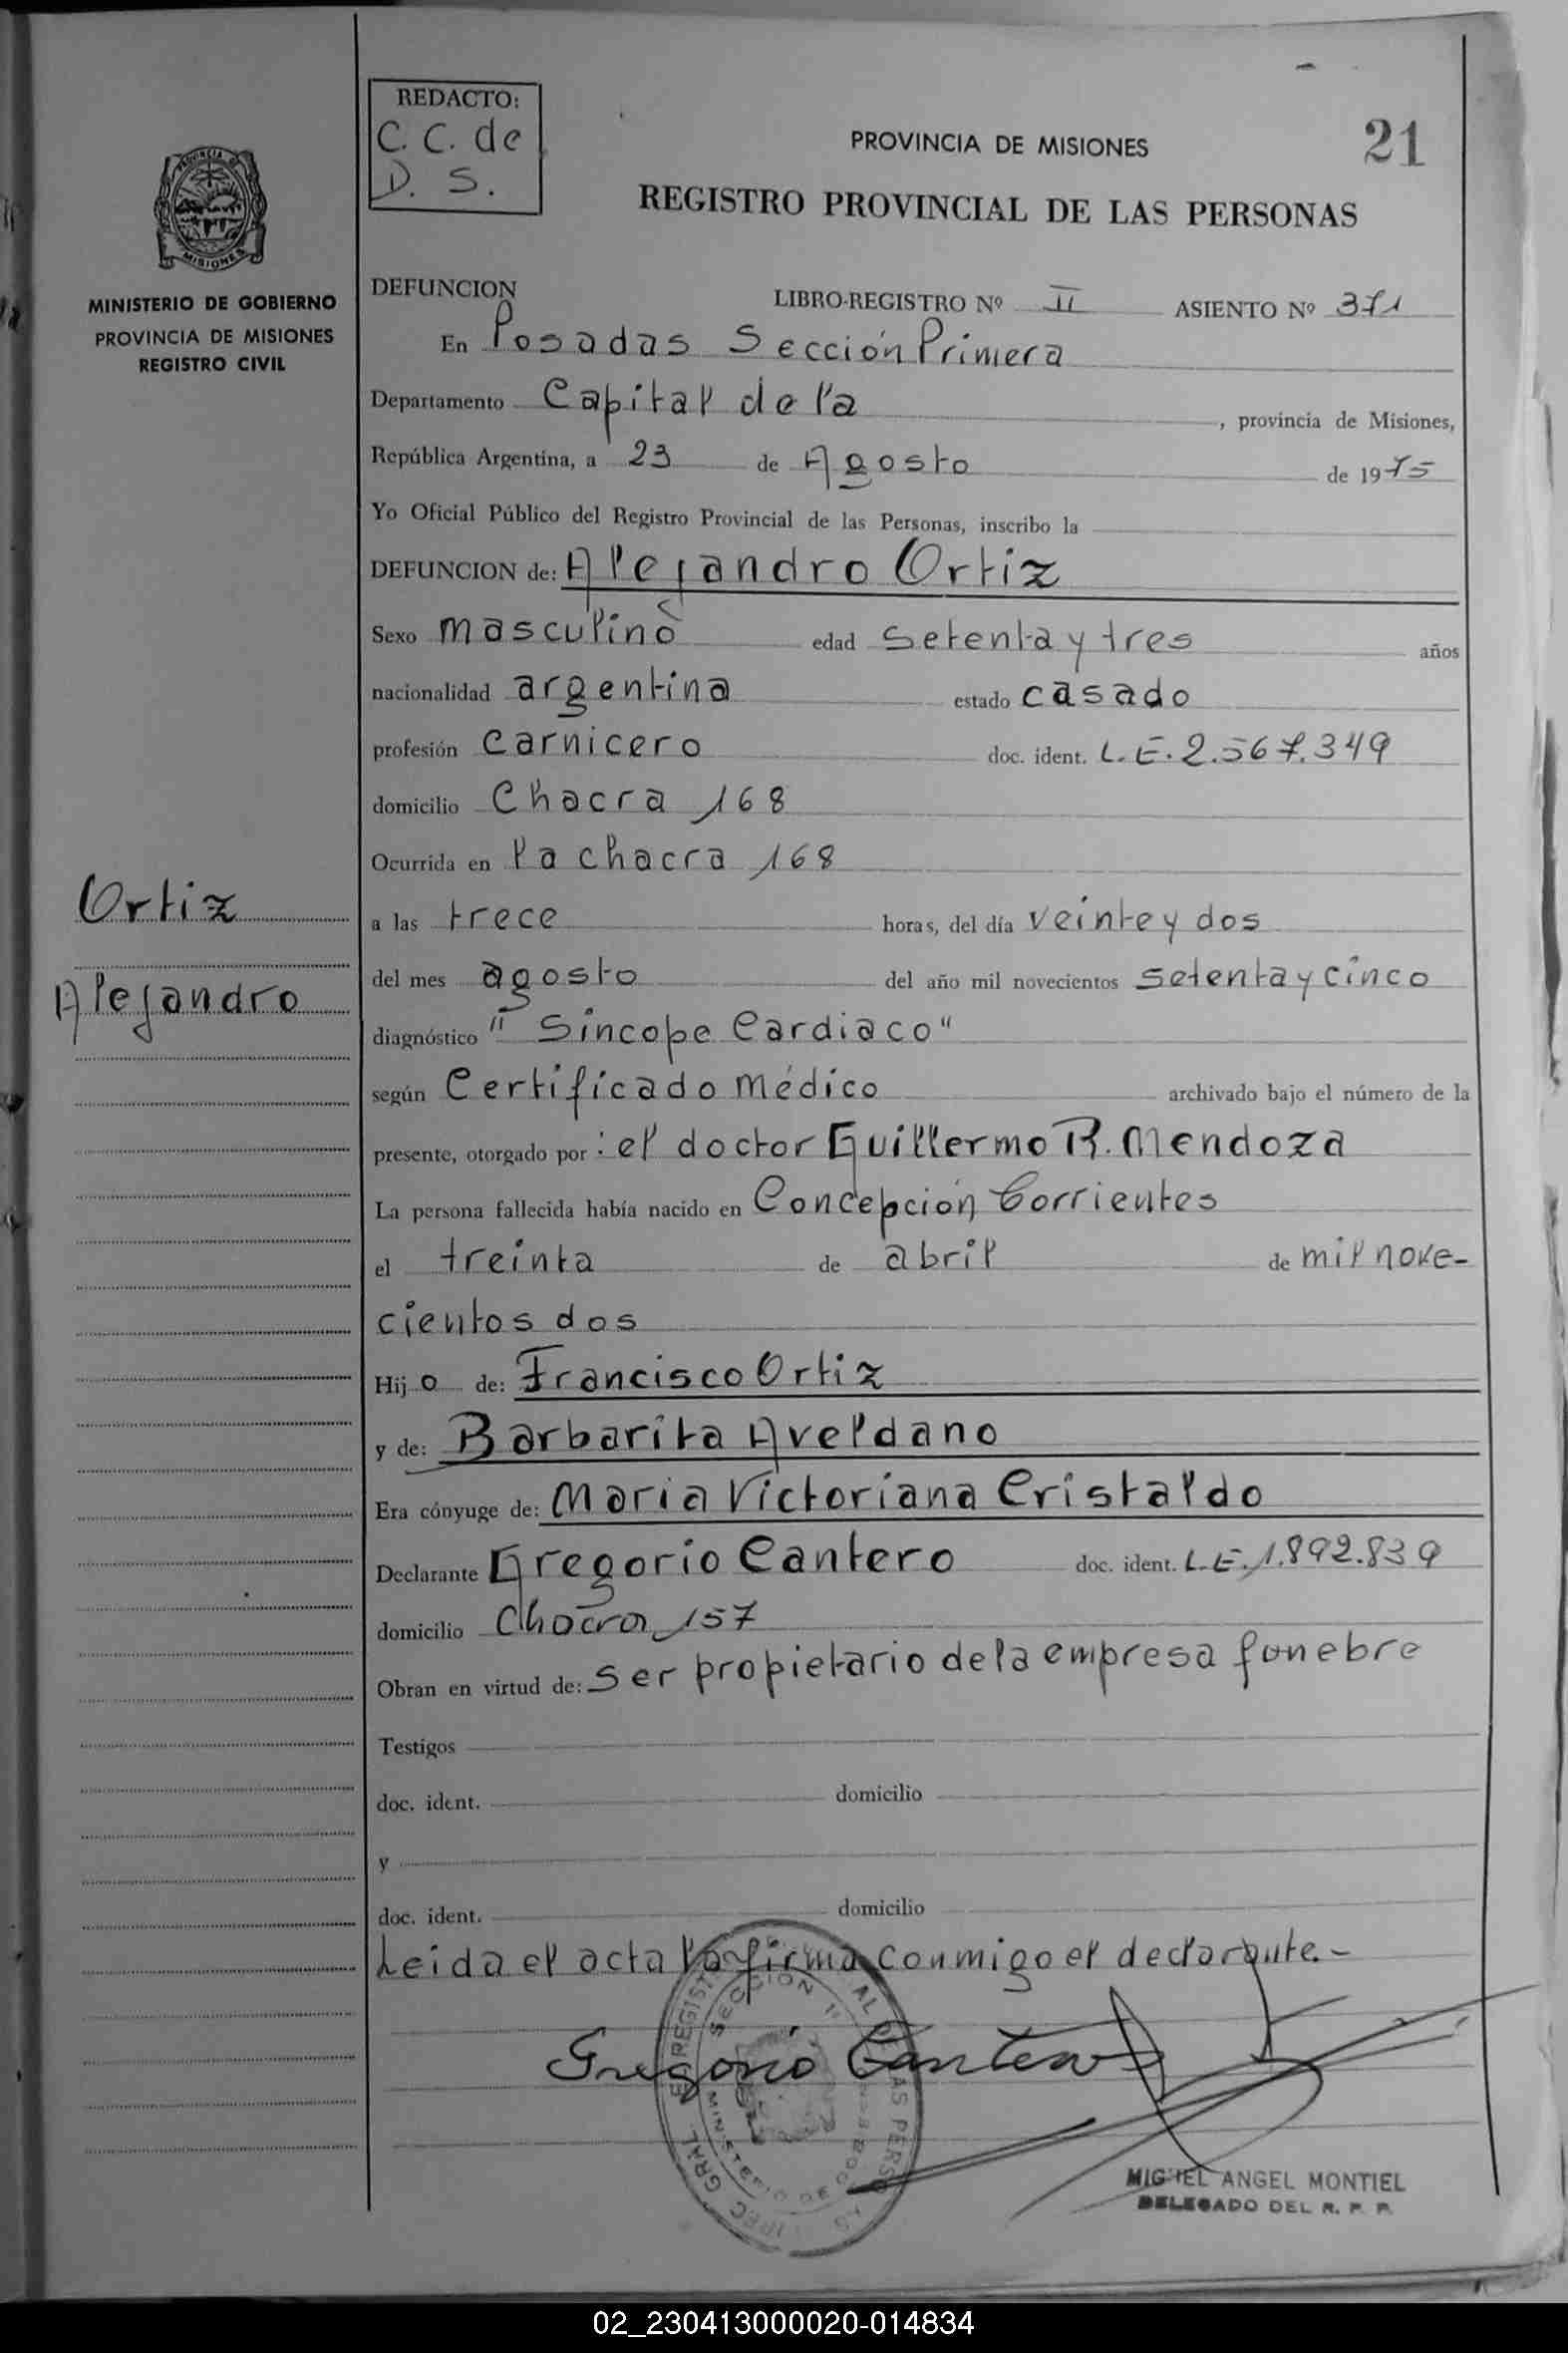 REDACTO:
C. C. de
D. S.
PROVINCIA DE MISIONES
21
REGISTRO PROVINCIAL DE LAS PERSONAS
PROVINCIA DE
MISIONES
MINISTERIO DE GOBIERNO
PROVINCIA DE MISIONES
REGISTRO CIVIL
DEFUNCION
LIBRO-REGISTRO Nº II ASIENTO Nº 371
En Posadas Sección Primera
Departamento Capital de la , provincia de Misiones,
República Argentina, a 23 de Agosto de 1975
Yo Oficial Público del Registro Provincial de las Personas, inscribo la
DEFUNCION de: Alejandro Ortiz
Sexo masculino edad setenta y tres años
nacionalidad argentina estado casado
profesión carnicero doc. ident. L.E. 2.567.349
domicilio Chacra 168
Ocurrida en la chacra 168
a las trece horas, del día veinte y dos
del mes agosto del año mil novecientos setenta y cinco
diagnóstico "Síncope Cardiaco"
según Certificado médico archivado bajo el número de la
presente, otorgado por: el doctor Guillermo R. Mendoza
La persona fallecida había nacido en Concepción Corrientes
el treinta de abril de mil nove-
cientos dos
Hijo de: Francisco Ortiz
y de: Barbarita Aveldano
Era cónyuge de: Maria Victoriana Cristaldo
Declarante Gregorio Cantero doc. ident. L.E. 1.892.839
domicilio Chacra 157
Obran en virtud de: Ser propietario de la empresa funebre
Testigos
doc. ident. domicilio
y
doc. ident. domicilio
Leida el acta la firma conmigo el declarante.-
Gregorio Cantero
MIGUEL ANGEL MONTIEL
DELEGADO DEL R. P. P.
Ortiz
Alejandro
02_230413000020-014834